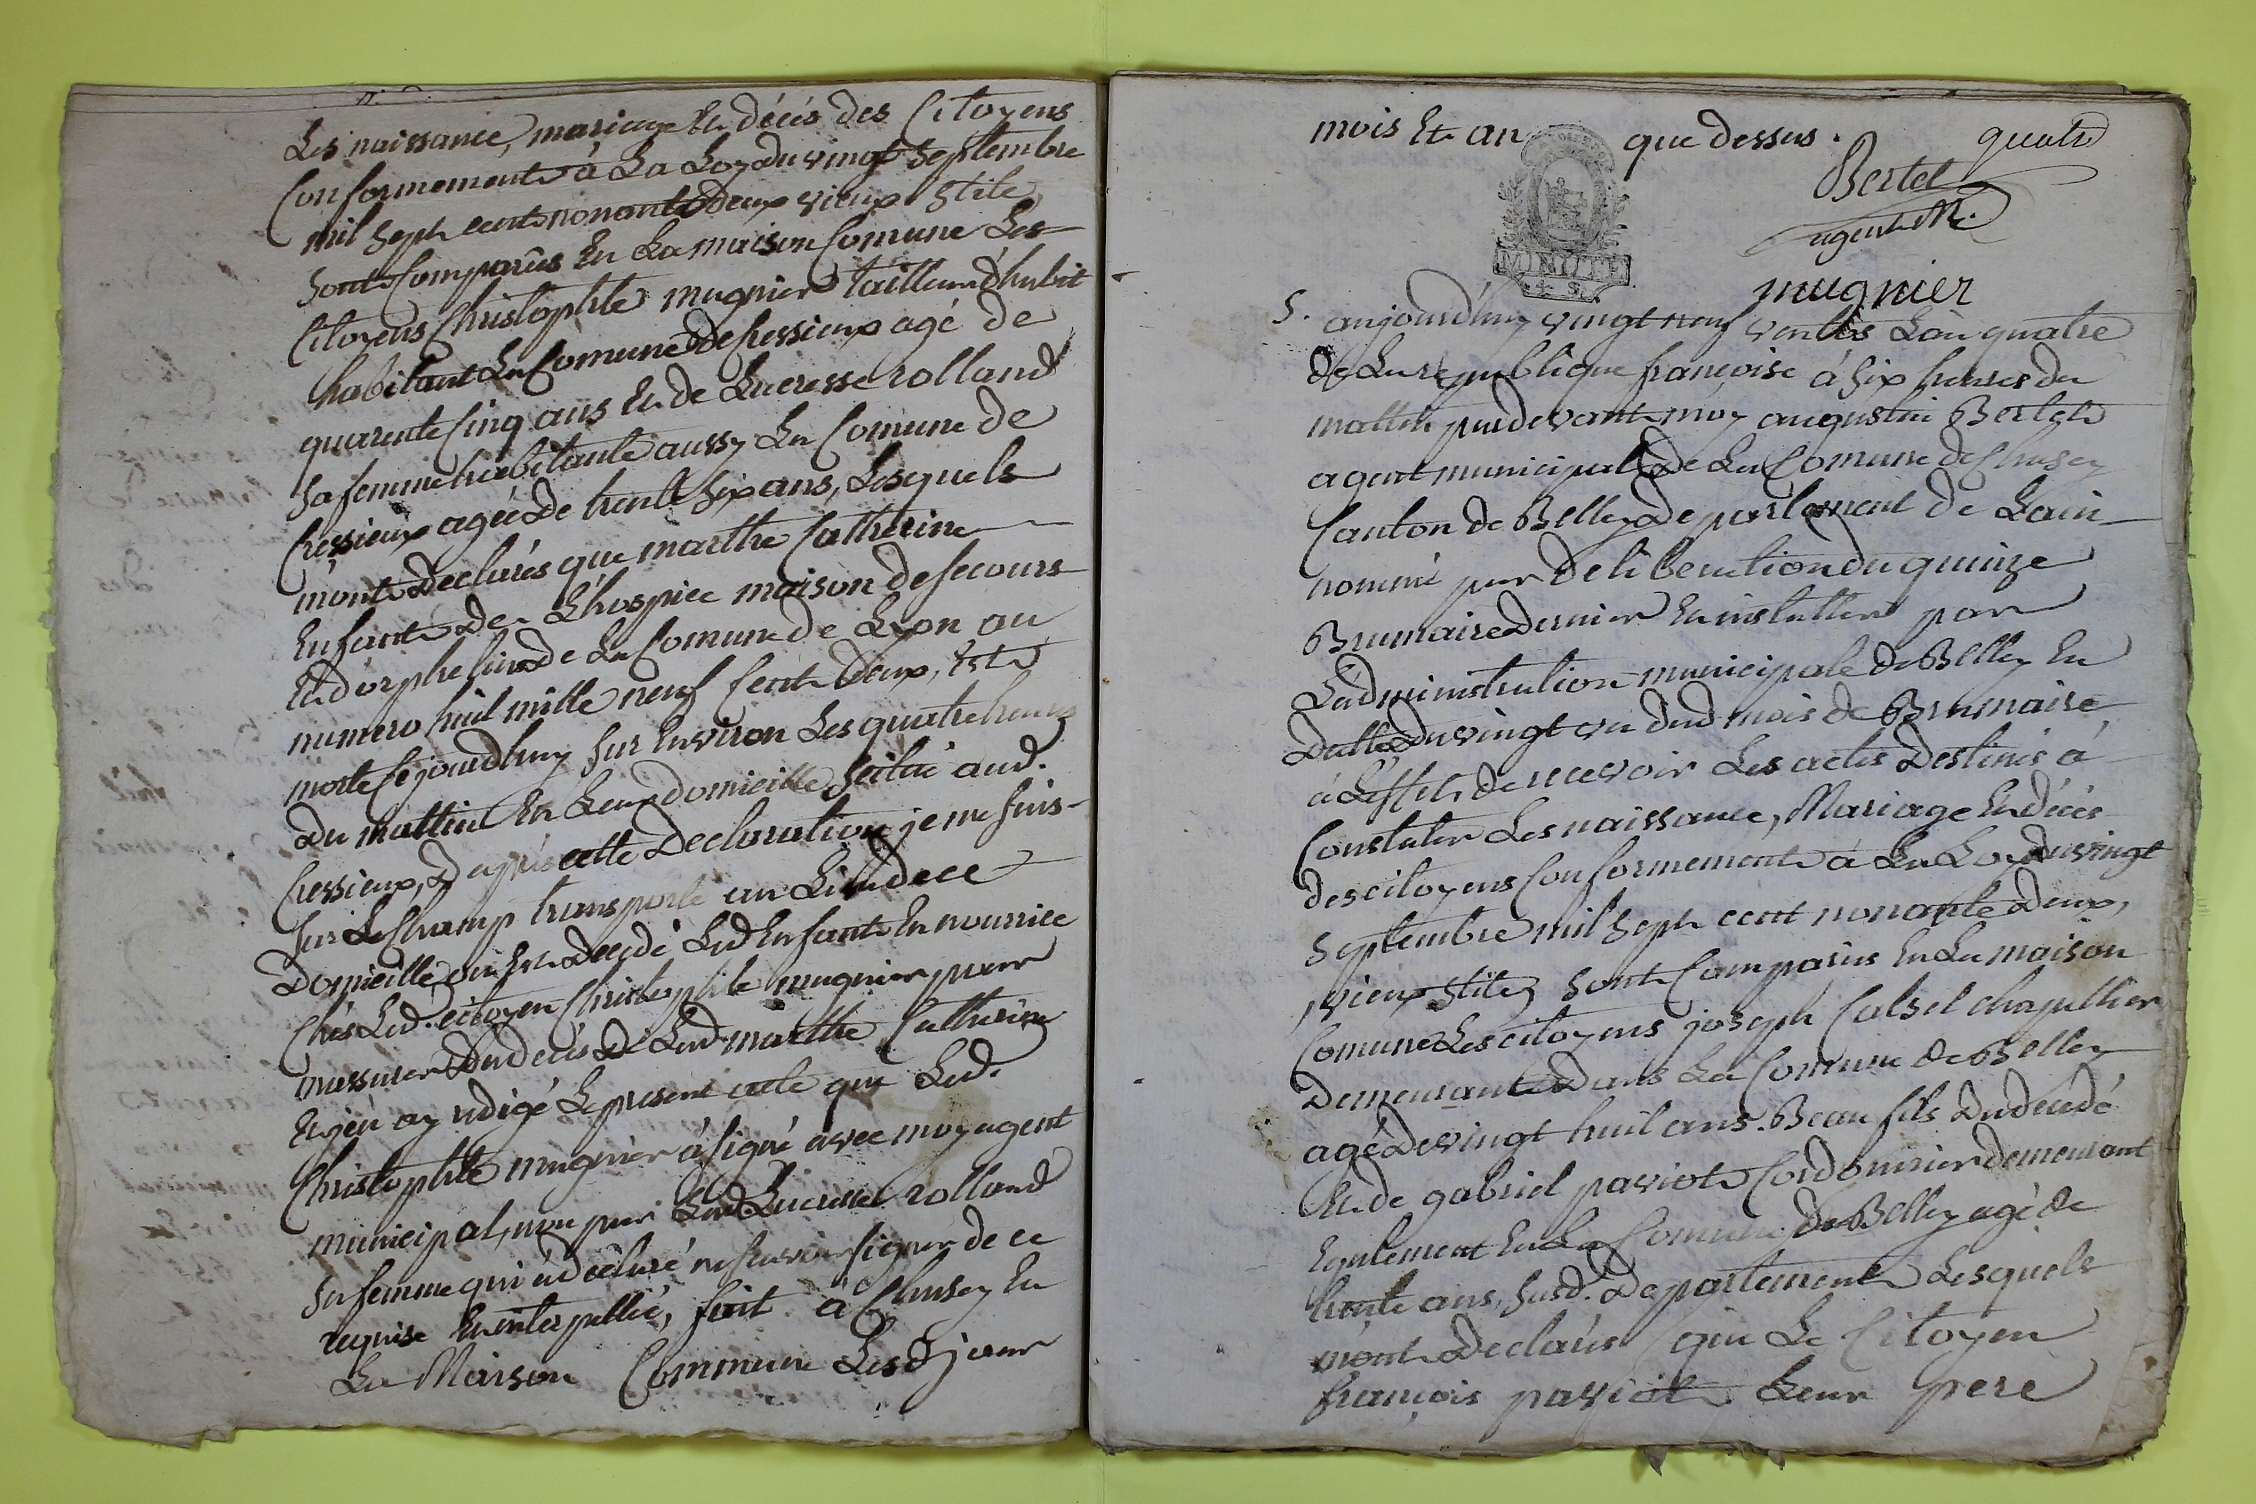 Les naissance, mariage Et décés des Citoyens
Conformement à La Loy du vingt Septembre
mil Sept cent nonante deux vieux Stile
Sont Comparûs En La maison Comune Les
Citoyens Christophle mugnier tailleur d'habit
habitant La Comune de Cressieux agé de
quarente Cinq ans Et de Lucresse rolland
Sa femme habitante aussy La Comune de
Cressieux agéé de trente Six ans, Lesquels
m'ont Declarés que marthe Catherine
Enfant de L'hospice maison de Secours
Et d'orphelins de La Comune de Lyon au
numero huit mille neuf Cent deux, Est
morte Cejourdhuy Sur Environ Les quatre heures
du mattin En Leur domicille Scitué aud.
Cressieux, D'après cette Declaration je me suis
Sur Le Champ transporté au Lieu de ce
Domicille où Est decedé Led Enfant En nourrice
Chés Led. citoyen Christophle mugnier pour
m'assurer du décés de Lad. marthe Catherine
Et j'en ay redigé Le present acte que Led.
Christophle mugnier à signé avec moy agent
municipal, non par Lad. Lucresse rolland
Sa femme qui à déclaré ne savoir signer de ce
requise Et interpellée, fait à Chusey En
La Maison Commune Lesd jour
mois Et an que dessus.
quatre
Bertet
agent M.
MINUTE
mugnier
5. aujourd'huy vingt neuf ventôs L'an quatre
de La republique françoise à Six heures du
mattin pardevant moy augustin Bertet
agent municipal de La Comune de Chusey
Canton de Belley departement de L'ain
nommé par deliberation du quinze
Brumaire dernier Et installer par
L'administration municipale de Belley En
datte du vingt un dud mois de Brumaire
à L'effet de recevoir Les actes Destinés à
Constater Les naissance, Mariage Et décés
des citoyens Conformement à La Loy du vingt
Septembre mil Sept cent nonante deux,
vieux Stile, Sont Comparus En La maison
Comune Les citoyens joseph Calsel chapellier
Demeurant dans La Commune de Belley
agé de vingt huit ans Beau fils du décédé
Et de gabriel paviot Cordonnier demeurant
Egalement En La Comune de Belley agé de
trente ans, Susd. Departement Lesquels
m'ont Declarés que Le Citoyen
françois paviot Leur pere